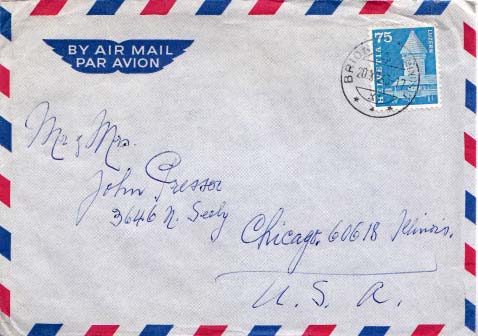 BY AIR MAIL
PAR AVION
75
HELVETIA
LUZERN
Mr & Mrs.
John Pressor
3646 N. Seely
Chicago. 60618 Illinois.
U. S. A.